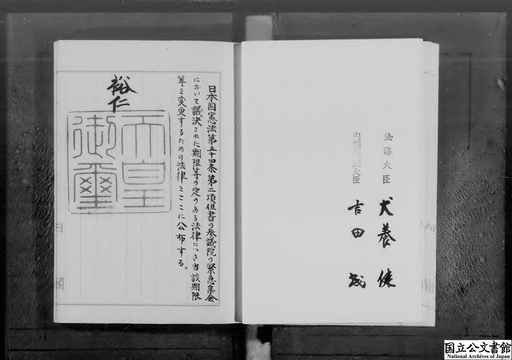 日本国憲法第五十四条第二項但書の参議院の緊急集会
において議決された期限等の定のある法律につき当該期限
等を変更するための法律をここに公布する。
裕仁
天皇
御璽
法務大臣 犬養健
内閣総理大臣 吉田茂
国立公文書館
National Archives of Japan